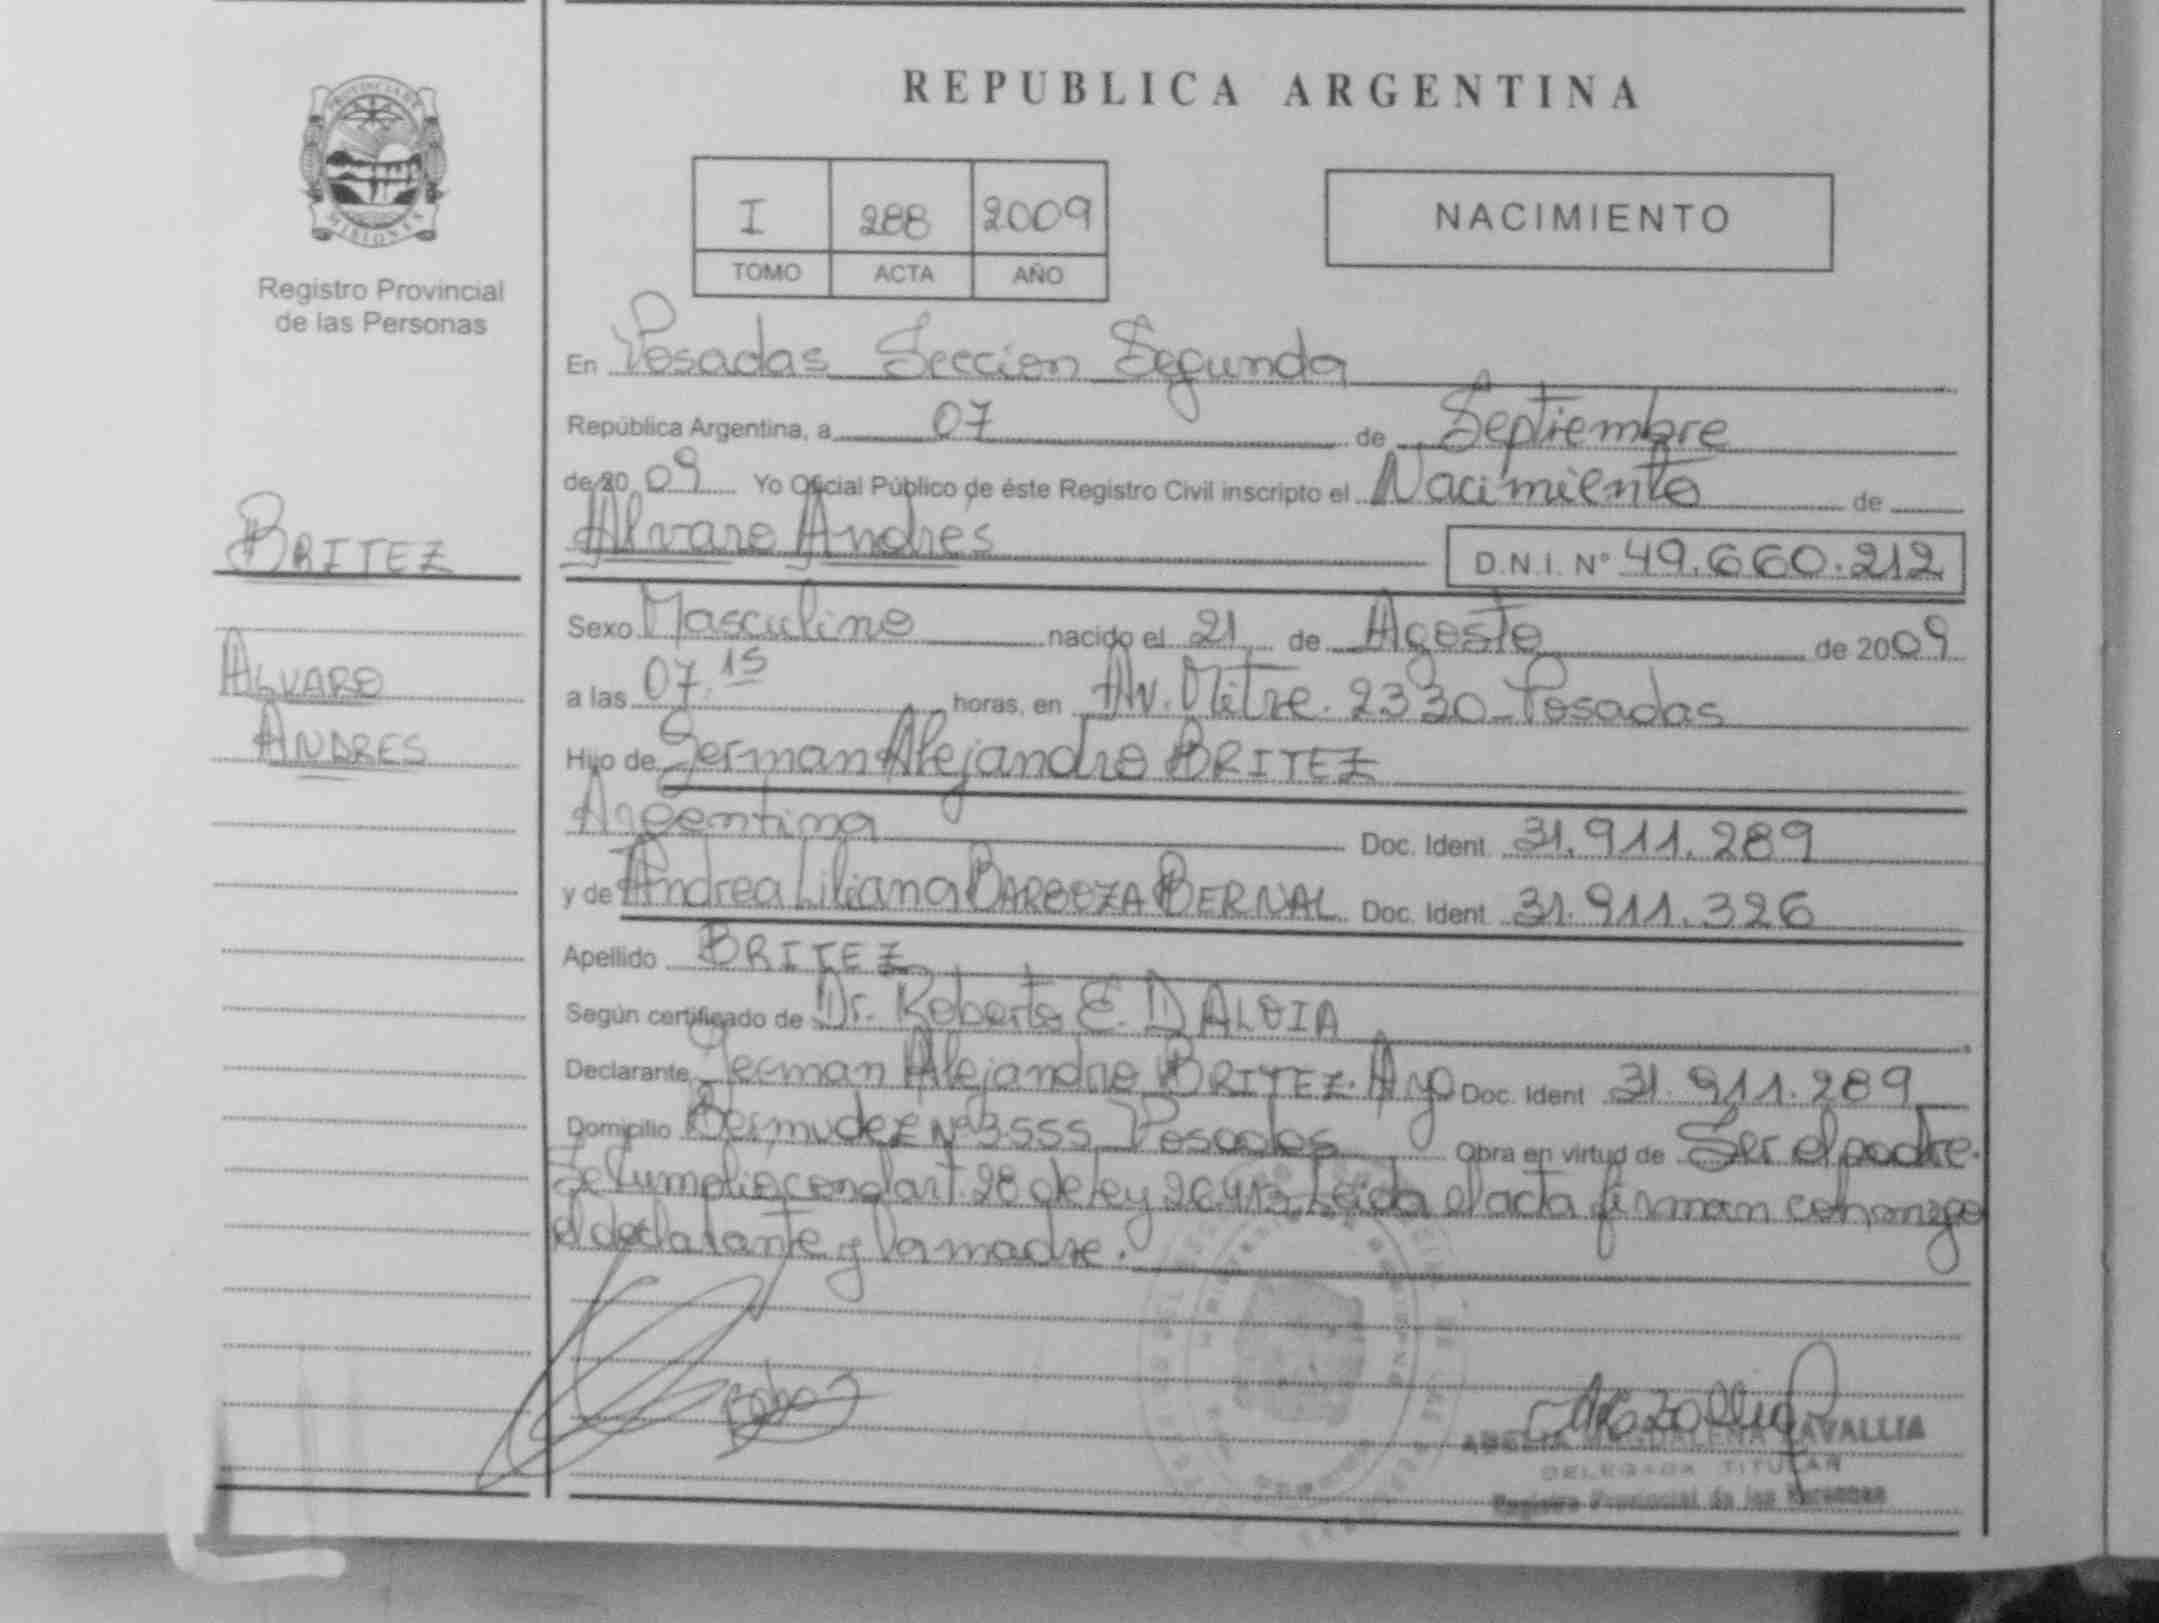 REPUBLICA ARGENTINA
PROVINCIA DE
MISIONES
Registro Provincial
de las Personas
I 288 2009
TOMO ACTA AÑO
NACIMIENTO
En Posadas Seccion Segunda
República Argentina, a 07 de Septiembre
de 20 09 Yo Oficial Público de éste Registro Civil inscripto el Nacimiento de
BRITEZ
Alvaro Andres D.N.I. Nº 49.660.212
Sexo Masculino nacido el 21 de Agosto de 2009
ALVARO
a las 07.15 horas, en Av. Mitre. 2330 Posadas
ANDRES
Hijo de German Alejandro BRITEZ
Argentina Doc. Ident. 31.911.289
y de Andrea Liliana BARBOZA BERNAL Doc. Ident. 31.911.326
Apellido BRITEZ
Según certificado de Dr. Roberto E. DALOIA
Declarante German Alejandro BRITEZ. Arg Doc. Ident 31.911.289
Domicilio Bermudez Nº 3555 Posadas Obra en virtud de Ser el padre.
Se cumplio con el art. 28 de ley 26.413. Leida el acta firman conmigo
el declarante y la madre.
MAGDALENA CAVALLIA
DELEGADA TITULAR
Registro Provincial de las Personas